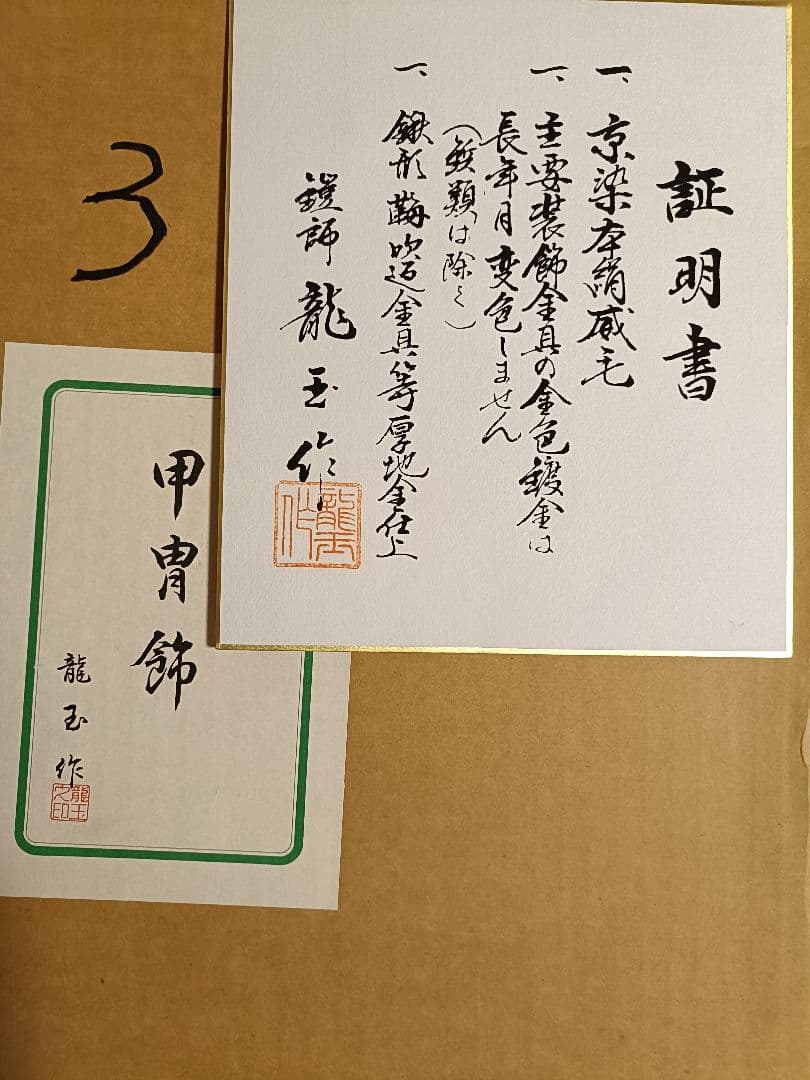 証明書
一、京染本絹威毛
一、主要装飾金具の金色鍍金は
長年月変色しません
(鋲類は除く)
一、鍬形 吹返金具等厚地金仕上
鎧師 龍玉作
龍玉作
3
甲冑飾
龍玉作
龍玉之印